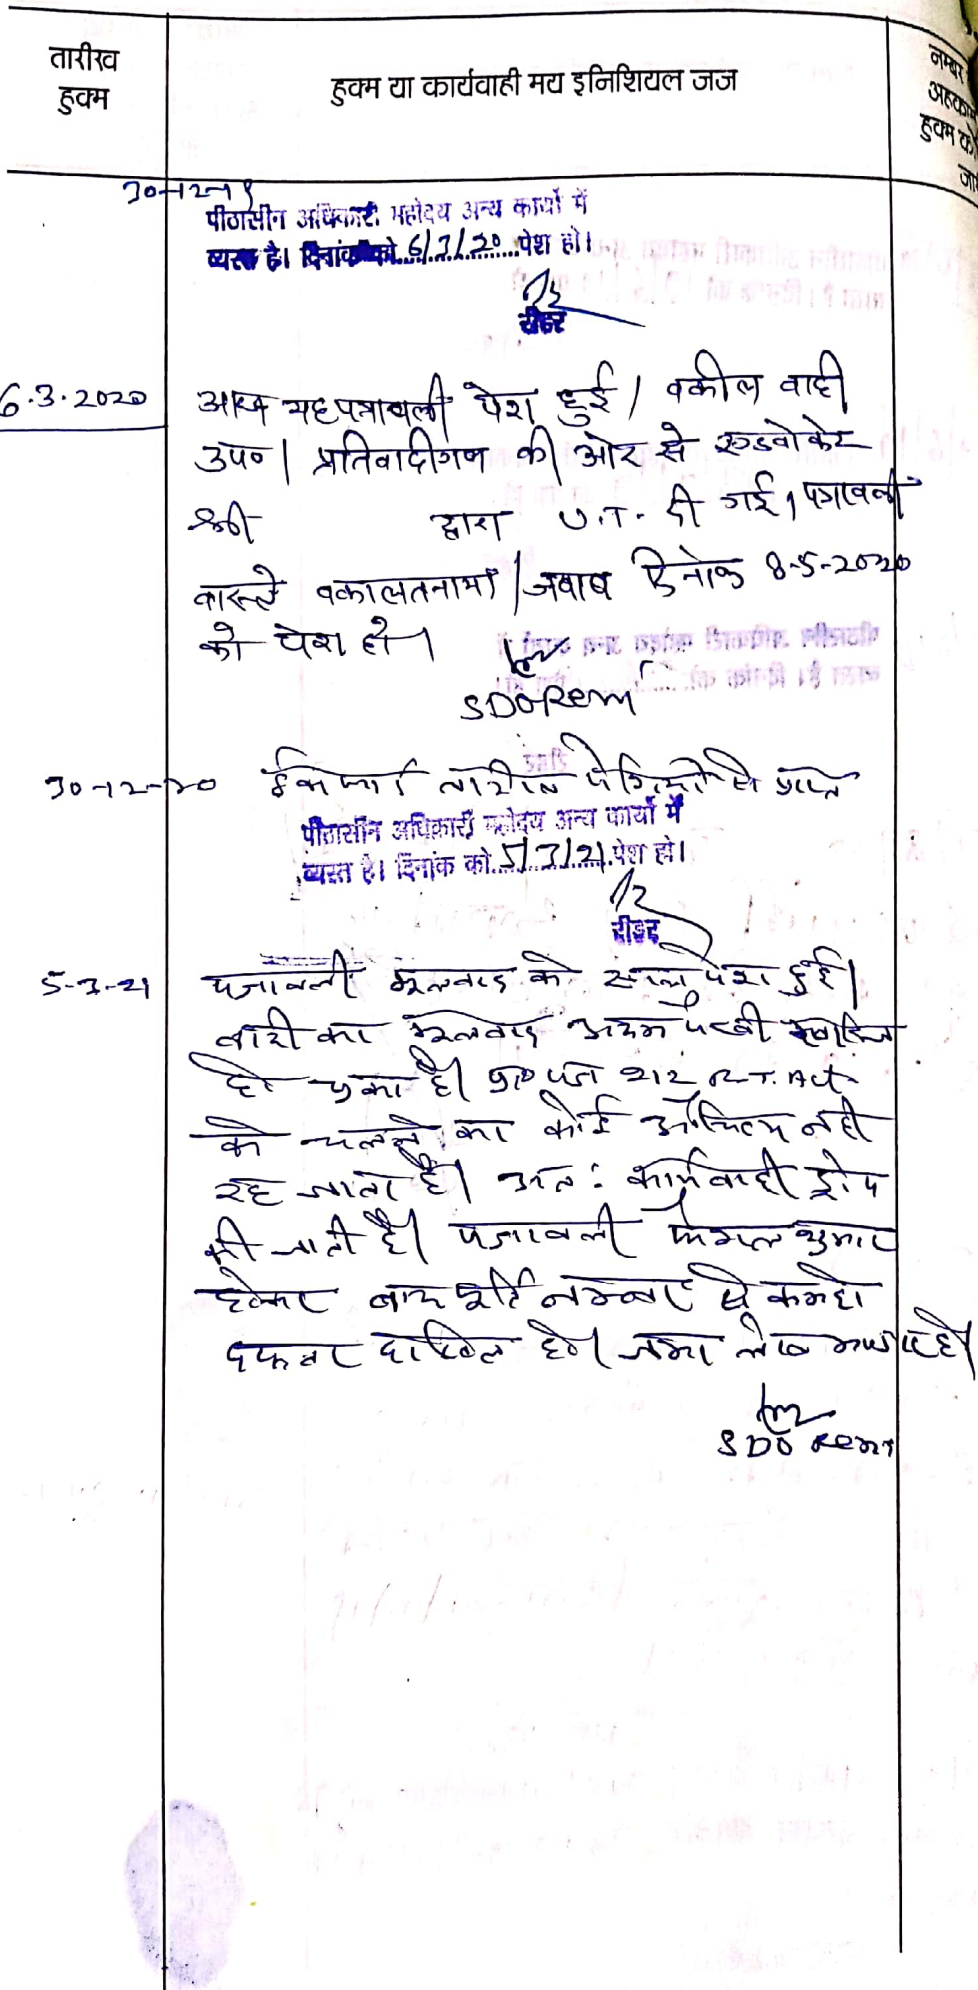 तारीख
हुक्म
हुक्म या कार्यवाही मय इनिशियल जज
नम्बर
अहकाम
हुक्म के
30-12-19
पीठासीन अधिकारी महोदय अन्य कार्यो में
व्यस्त है। दिनांक को 6/3/20 पेश हो।
रीडर
6.3.2020
आज यह पत्रावली पेश हुई। वकील वादी
उप०। प्रतिवादीगण की ओर से एडवोकेट
श्री द्वारा U.T. दी गई। पत्रावली
वास्ते वकालतनामा/जवाब दिनांक 8-5-2020
को पेश हो।
SDO Reni
30-12-20
तारीख पेशियों से प्राप्त
पीठासीन अधिकारी महोदय अन्य कार्यो में
व्यस्त है। दिनांक को 5/3/21 पेश हो।
रीडर
5-3-21
पत्रावली मूलवाद के साथ पेश हुई।
वादी का मूलवाद अदम पैरवी खारिज
हो चुका है। प्रा० पत्र 212 R.T. Act
के चलने का कोई औचित्य नही
रह जाता है। अतः कार्यवाही ड्रोप
की जाती है। पत्रावली फैसल शुमार
होकर बाद नम्बर से कम हो
दफ्तर दाखिल हो।
SDO Reni